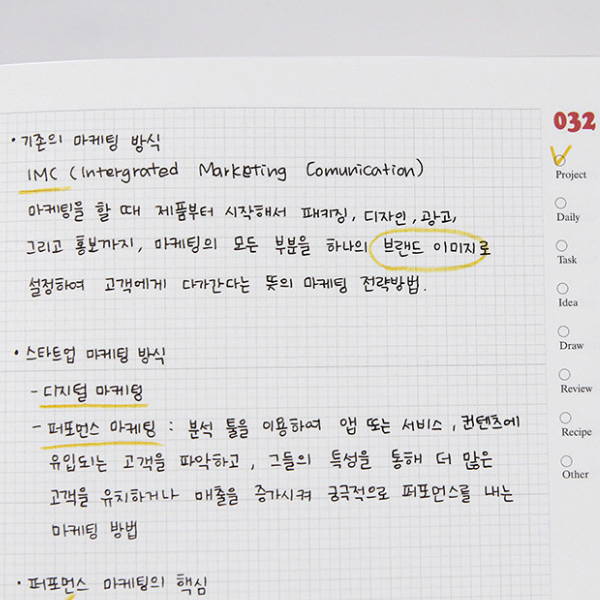 032
Project
Daily
Task
Idea
Draw
Review
Recipe
Other
• 기존의 마케팅 방식
IMC (Intergrated Marketing Comunication)
마케팅을 할 때 제품부터 시작해서 패키징, 디자인, 광고,
그리고 홍보까지, 마케팅의 모든 부분을 하나의 브랜드 이미지로
설정하여 고객에게 다가간다는 뜻의 마케팅 전략방법.
• 스타트업 마케팅 방식
- 디지털 마케팅
- 퍼포먼스 마케팅 : 분석 툴을 이용하여 앱 또는 서비스, 컨텐츠에
유입되는 고객을 파악하고, 그들의 특성을 통해 더 많은
고객을 유치하거나 매출을 증가시켜 궁극적으로 퍼포먼스를 내는
마케팅 방법
• 퍼포먼스 마케팅의 핵심